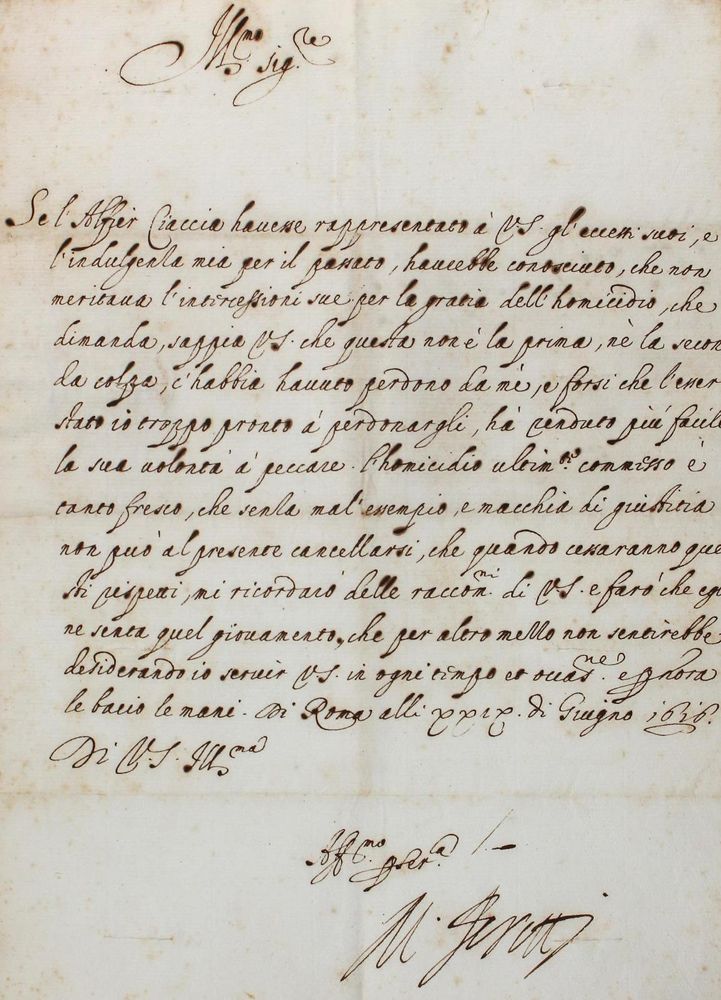 Ill.mo sig.re
Se l'Alfier Ciaccia havesse rappresentato à VS. gl'eccessi suoi, e
l'indulgenza mia per il passato, haverebbe conosciuto, che non
meritava l'intercessioni sue per la gratia dell'homicidio, che
dimanda, sappia VS. che questa non é la prima, nè la secon
da colpa, c'habbia havuto perdono da mè, e forsi che l'esser
stato io troppo pronto á perdonargli, há renduto piú facile
la sua volontá á peccare. l'homicidio ultim.te commesso è
tanto fresco, che senza mal'essempio, e macchia di giustitia
non può al presente cancellarsi, che quando cessaranno que
sti rispetti, mi ricordaró delle raccom.ni di VS. e faró che egli
ne senta quel giovamento, che per altro mezzo non sentirebbe
desiderando io servir VS. in ogni tempo et occas.ne e
le bacio le mani. Di Roma alli xxix. di Giugno 1616.
Di V.S. Ill.ma
Aff.mo
M. Peretti